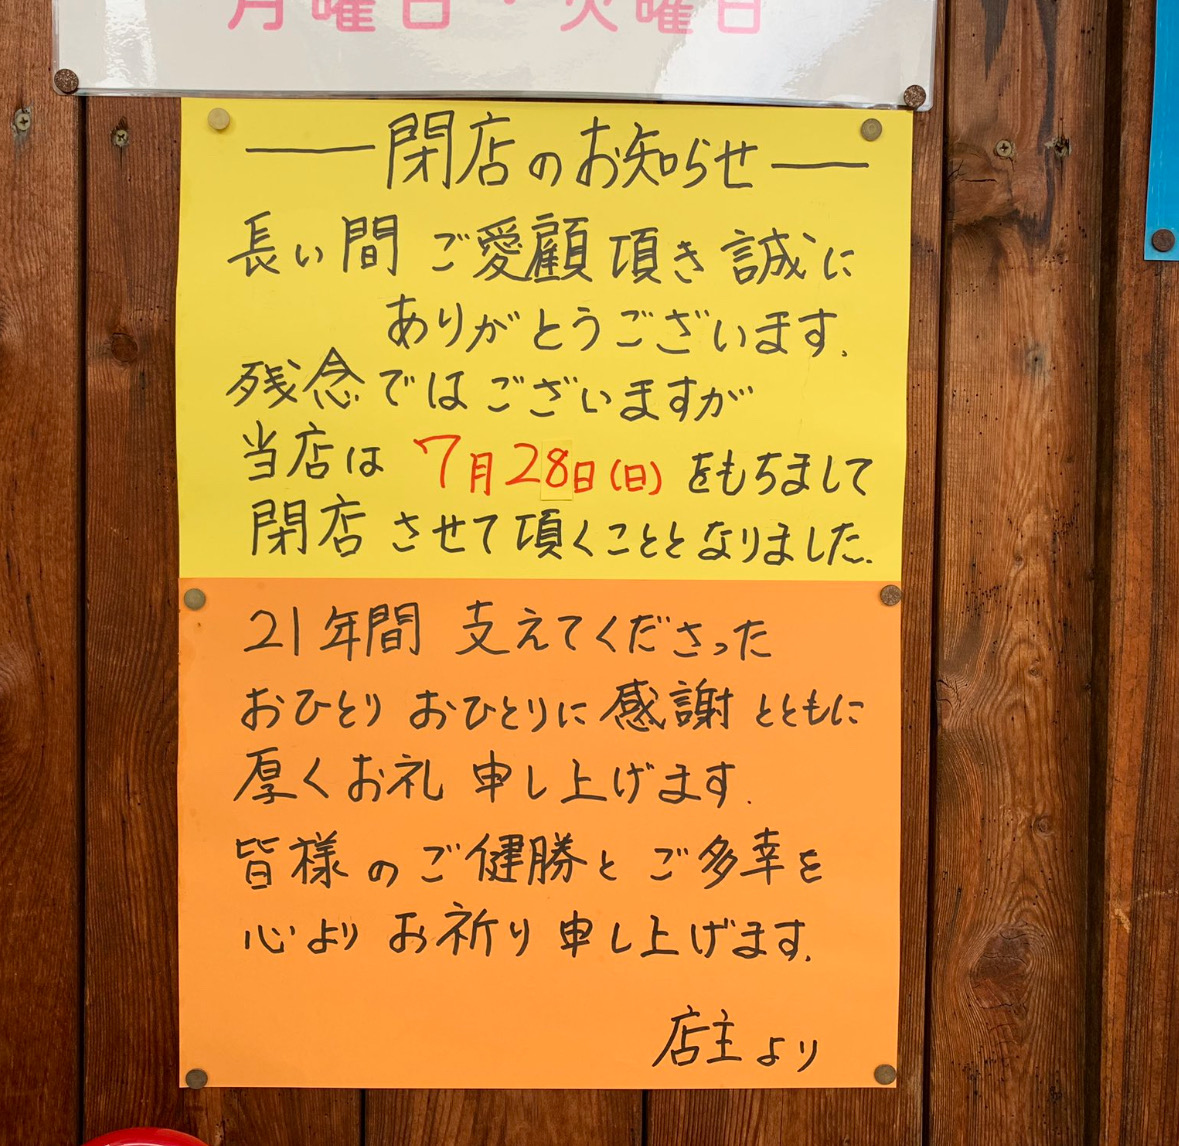 月曜日・火曜日
閉店のお知らせ
長い間 ご愛顧 頂き 誠に
ありがとうございます.
残念ではございますが
当店は 7月28日(日) をもちまして
閉店させて頂くこととなりました.
21年間 支えてくださった
おひとり おひとりに 感謝とともに
厚くお礼 申し上げます.
皆様のご健勝と ご多幸を
心より お祈り 申し上げます.
店主より